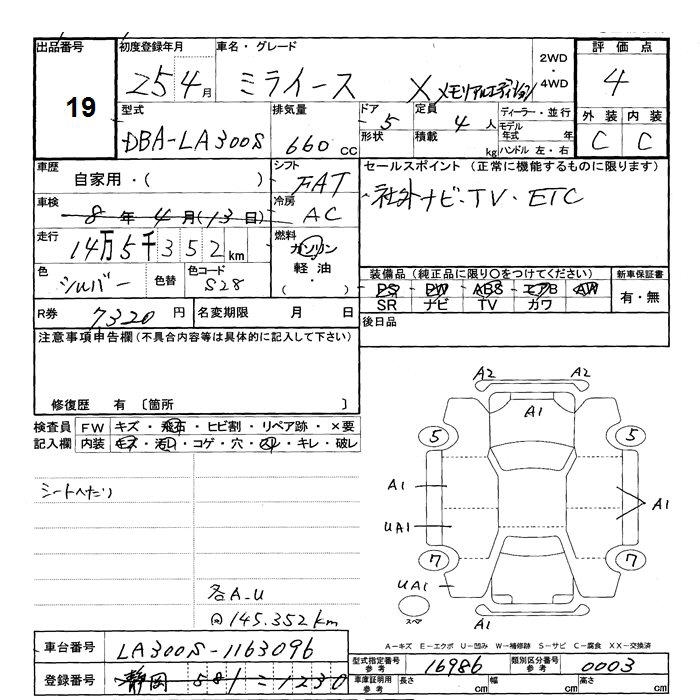 出品番号
19
初度登録年月
25 4月
車名・グレード
ミライース X メモリアルエディション
2WD
・
4WD
評価点
4
外装 内装
C C
型式
DBA-LA300S
排気量
660 cc
ドア 5
形状
定員 4 人
積載 kg
ディーラー・並行
モデル年式 年
ハンドル 左・右
車歴
自家用・( )
シフト
FAT
セールスポイント (正常に機能するものに限ります)
社外ナビ・TV・ETC
車検
8年 4月(13日)
冷房
AC
走行
14万5千352km
燃料
ガソリン
軽油
( ・ )
色
シルバー
色替
色コード
S28
装備品 (純正品に限り○をつけてください)
PS PW ABS エアB AW
SR ナビ TV カワ
新車保証書
有・無
R券 7320 円
名変期限 月 日
後日品
注意事項申告欄 (不具合内容等は具体的に記入して下さい)
修復歴 有 〔箇所 〕
検査員 FW キズ・飛石・ヒビ割・リペア跡・×要
記入欄 内装 キズ・汚レ・コゲ・穴・スレ・キレ・破レ
シートへたり
各A-U
145.352km
A2 A2
A1
5 5
A1
A1
UA1
7 7
UA1
スペア
A1
A-キズ E-エクボ U-凹み W-補修跡 S-サビ C-腐食 XX-交換済
車台番号 LA300S-1163096
登録番号 静岡 581 ミ 1230
型式指定番号 参考 16986
類別区分番号 参考 0003
車庫証明用 参考 長さ cm 幅 cm 高さ cm